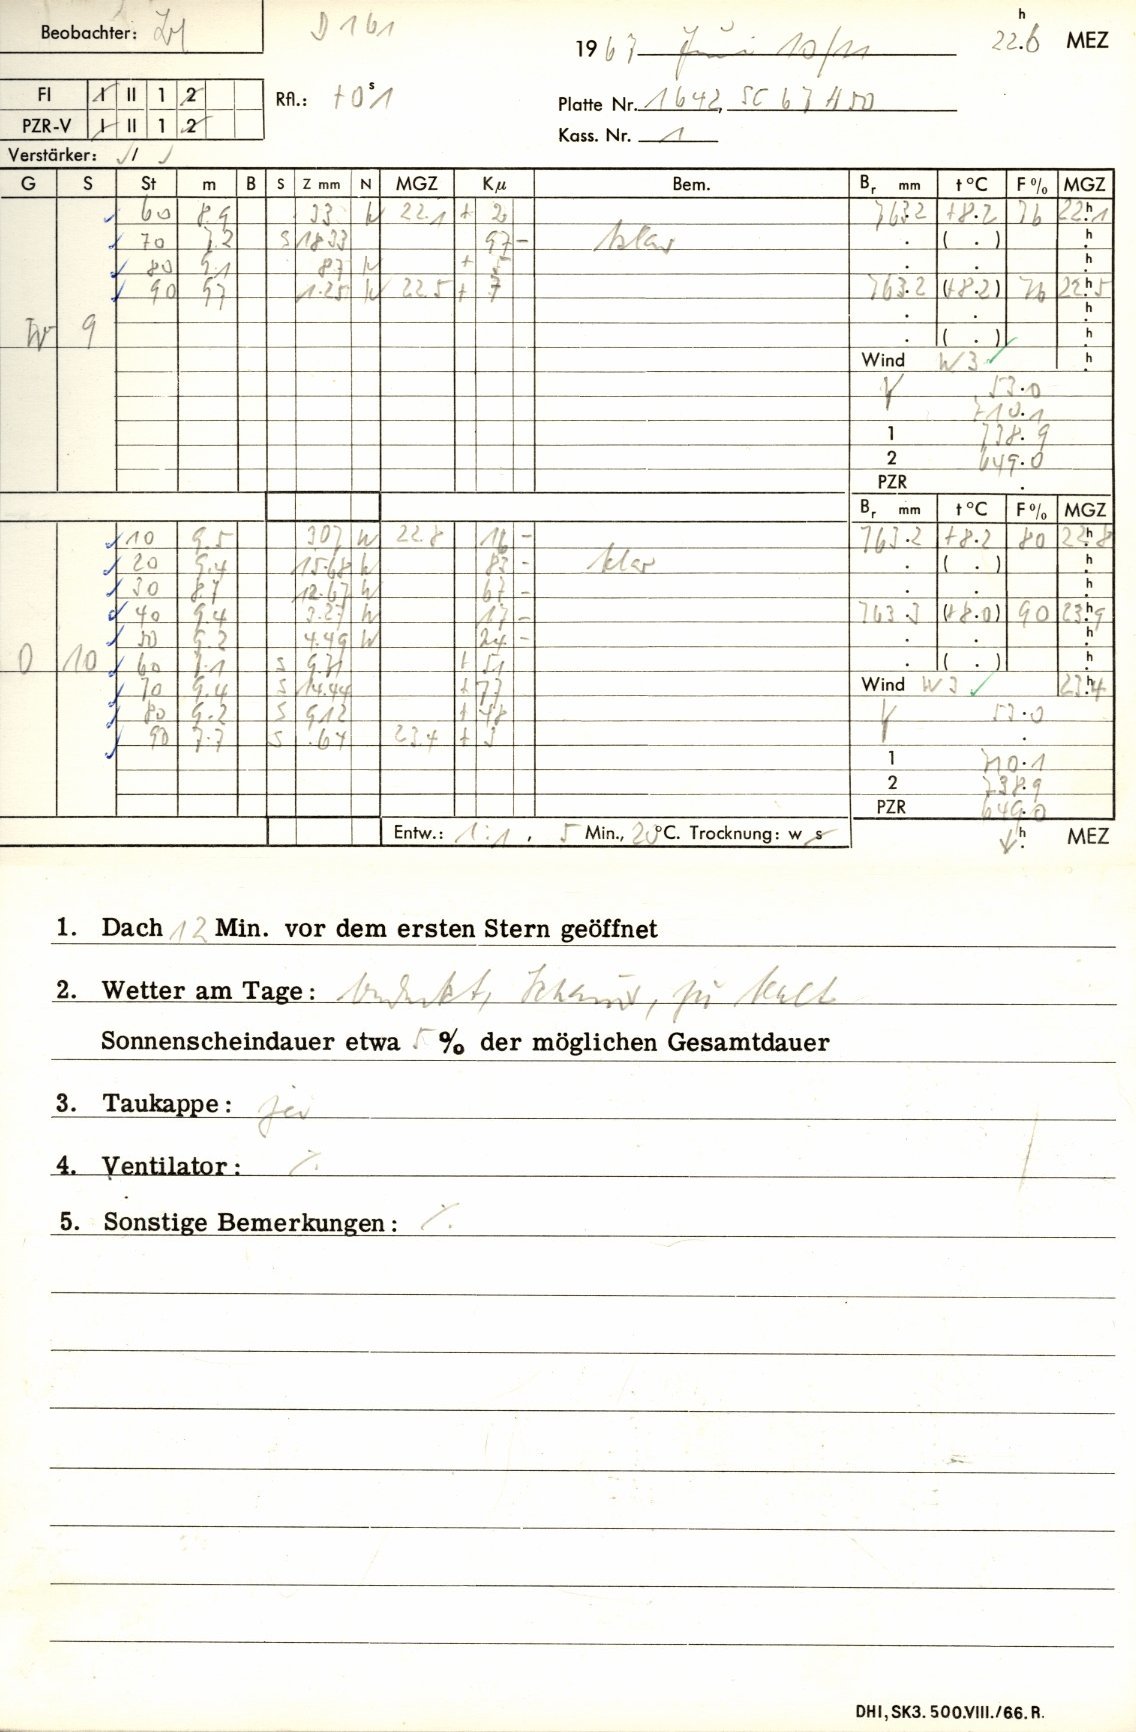 Beobachter:
D 161
1967 Juni 10/11
22.6 h MEZ
FI I II 1 2
PZR-V I II 1 2
Rfl.: +0s1
Platte Nr. 1642, SC 67 H50
Kass. Nr. 1
Verstärker: /
G S St m B S Z mm N MGZ Kµ Bem. Br mm t°C F% MGZ
60 8.9 33 W 22.1 + 2 763.2 +8.2 76 22h1
70 7.2 S 1833 97 - klar ( . ) h
80 9.1 87 W + 5 h
90 9.7 1.25 W 22.5 + 7 763.2 (+8.2) 76 22h5
W 9 ( . ) h
Wind W 3 h
V 53.0
710.1
1 738.9
2 649.0
PZR .
Br mm t°C F% MGZ
10 9.5 307 W 22.8 16 - 763.2 +8.2 80 22h8
20 9.4 15.68 W 83 - klar ( . ) h
30 8.7 12.67 W 67 - h
40 9.4 3.27 W 17 - 763.3 (+8.0) 90 23h9
50 9.2 4.49 W 24 - h
O 10 60 7.1 S 971 + 51 ( . ) h
70 9.4 S 14.44 + 77 Wind W 3 23h4
80 9.2 S 912 + 48 V 53.0
90 7.7 S .64 23.4 + 3 .
1 710.1
2 738.9
PZR 649.0
Entw.: 1:1, 5 Min., 20°C. Trocknung: w s
h MEZ
1. Dach 12 Min. vor dem ersten Stern geöffnet
2. Wetter am Tage: bedeckt, Schauer, zu kalt
Sonnenscheindauer etwa 5 % der möglichen Gesamtdauer
3. Taukappe: ja
4. Ventilator: ⁒
5. Sonstige Bemerkungen: ⁒
DHI, SK3. 500.VIII./66. R.